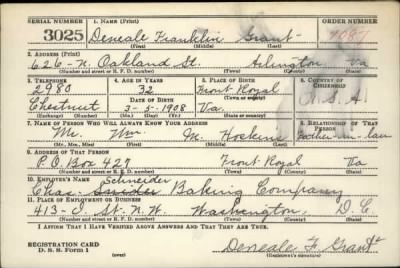 SERIAL NUMBER 1. NAME (Print) ORDER NUMBER
3025 Deneale Franklin Grant
(First) (Middle) (Last)
2. ADDRESS (Print)
626 - N. Oakland St. Arlington Va
(Number and street or R. F. D. number) (Town) (County) (State)
3. TELEPHONE 4. AGE IN YEARS 5. PLACE OF BIRTH 6. COUNTRY OF CITIZENSHIP
2980 32 Front Royal
(Town or county)
DATE OF BIRTH
Chestnut 3-5-1908 Va. U.S.A.
(Exchange) (Number) (Mo.) (Day) (Yr.) (State or country)
7. NAME OF PERSON WHO WILL ALWAYS KNOW YOUR ADDRESS 8. RELATIONSHIP OF THAT PERSON
Mr. Wm. M. Hoskins Father-in-law
(Mr., Mrs., Miss) (First) (Middle) (Last)
9. ADDRESS OF THAT PERSON
P.O. Box 427 Front Royal Va
(Number and street or R. F. D. number) (Town) (County) (State)
10. EMPLOYER'S NAME
Schneider
Chas. Snider Baking Company
11. PLACE OF EMPLOYMENT OR BUSINESS
413 - I St. N.W. Washington, D.C.
(Number and street or R. F. D. number) (Town) (County) (State)
I AFFIRM THAT I HAVE VERIFIED ABOVE ANSWERS AND THAT THEY ARE TRUE.
REGISTRATION CARD
D. S. S. Form 1
Deneale F. Grant
(Registrant's signature)